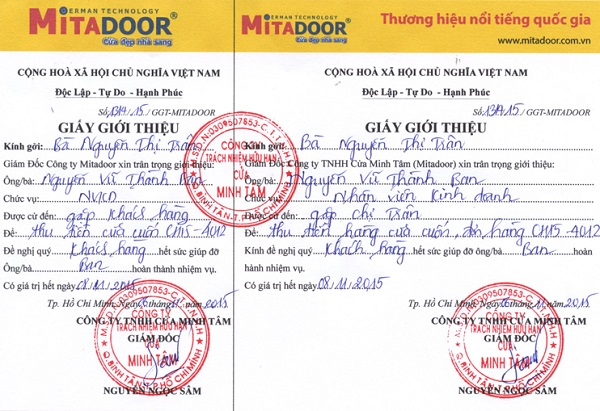 GERMAN TECHNOLOGY
MITADOOR®
Cửa đẹp nhà sang
CỘNG HOÀ XÃ HỘI CHỦ NGHĨA VIỆT NAM
Độc Lập - Tự Do - Hạnh Phúc
Số: 1314/15/GGT-MITADOOR
GIẤY GIỚI THIỆU
Kính gởi: Bà Nguyễn Thị Trân
Giám Đốc Công ty Mitadoor xin trân trọng giới thiệu:
Ông/bà: Nguyễn Vũ Thành
Chức vụ: NVKD
Được cử đến: gặp khách hàng
Để: thu tiền cửa cuốn CH15-4012
Đề nghị quý Khách hàng hết sức giúp đỡ
Ông/bà Ban hoàn thành nhiệm vụ.
Có giá trị hết ngày 08.11.2015
Tp. Hồ Chí Minh, Ngày 11 2015
CÔNG TY TNHH CỬA MINH TÂM
GIÁM ĐỐC
NGUYỄN NGỌC SÂM
M.S.D.N:0309507853-C.T.T.N.H.H
CÔNG TY
TRÁCH NHIỆM HỮU HẠN
CỬA
MINH TÂM
Q.BÌNH TÂN-T.P HỒ CHÍ MINH
GERMAN TECHNOLOGY
MITADOOR®
Cửa đẹp nhà sang
Thương hiệu nổi tiếng quốc gia
www.mitadoor.com.vn
CỘNG HOÀ XÃ HỘI CHỦ NGHĨA VIỆT NAM
Độc Lập - Tự Do - Hạnh Phúc
Số: 1314/15/GGT-MITADOOR
GIẤY GIỚI THIỆU
Kính gởi: Bà Nguyễn Thị Trân
Giám Đốc Công ty TNHH Cửa Minh Tâm (Mitadoor) xin trân trọng giới thiệu:
Ông/bà: Nguyễn Vũ Thành Ban
Chức vụ: Nhân viên Kinh doanh
Được cử đến: gặp chị Trân
Để: thu tiền hàng cửa cuốn, đơn hàng CH15-4012
Kính đề nghị quý Khách hàng hết sức giúp đỡ ông/bà Ban
hành nhiệm vụ.
Có giá trị hết ngày 08.11.2015
Tp. Hồ Chí Minh, Ngày 11 2015
CÔNG TY TNHH CỬA MINH TÂM
GIÁM ĐỐC
NGUYỄN NGỌC SÂM
M.S.D.N:0309507853-C.T.T.N.H.H
CÔNG TY
TRÁCH NHIỆM HỮU HẠN
CỬA
MINH TÂM
Q.BÌNH TÂN-T.P HỒ CHÍ MINH